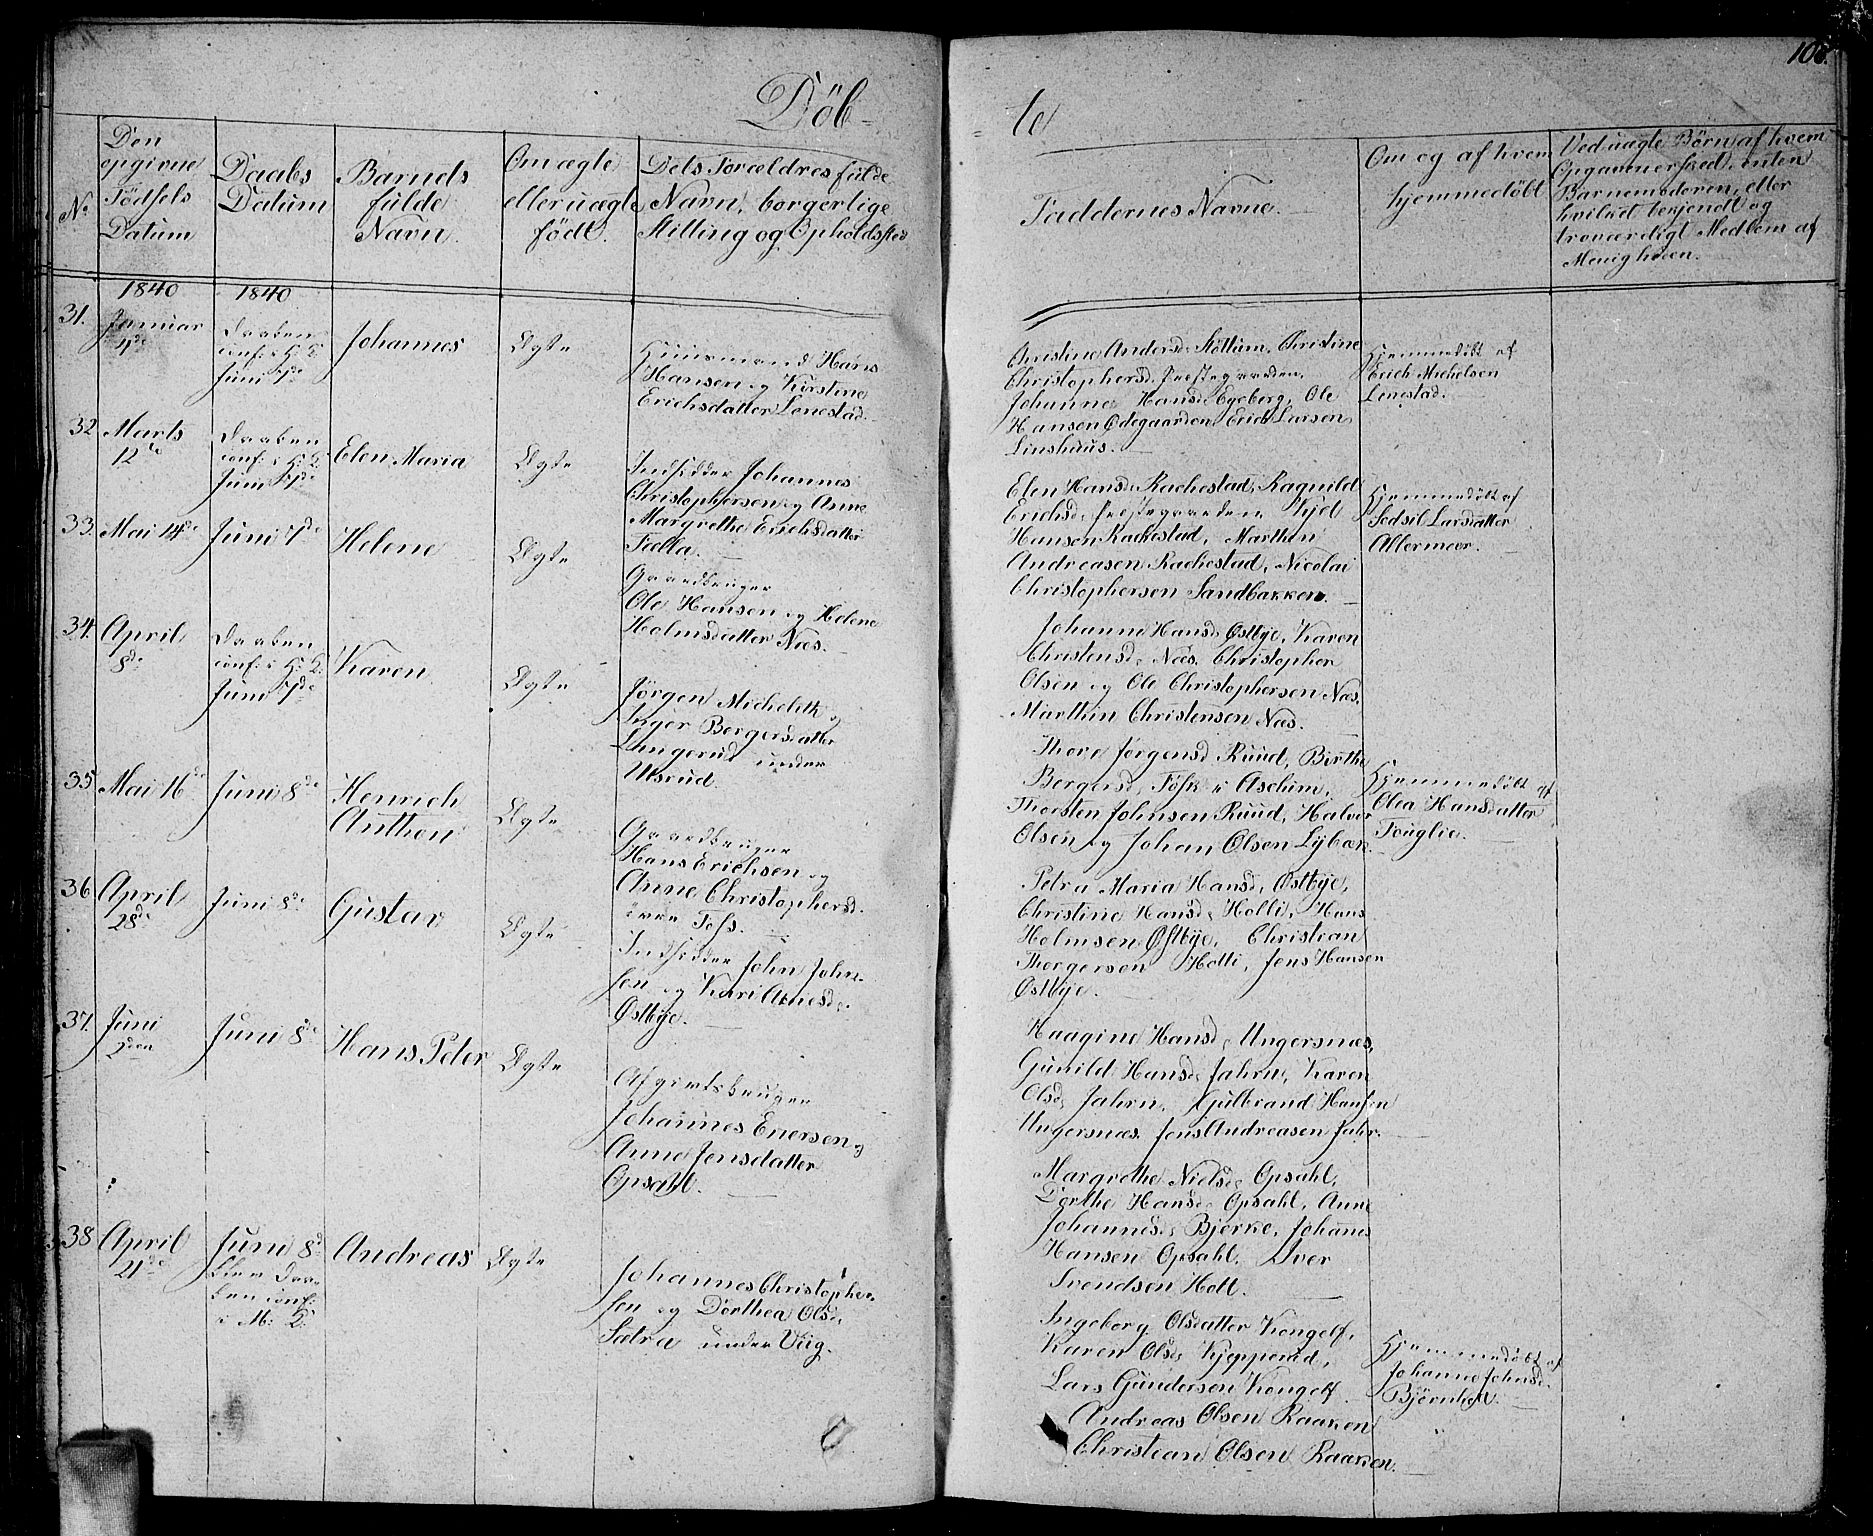 108.
Döb-
te
No
Den
opgivne
Födsels
Datum
Daabs
Datum
Barnets
fulde
Navn.
Om ægte
eller uægte
födt.
Dets Forældres fulde
Navn, borgerlige
Stilling og Opholdssted
Faddernes Navne.
Om og af hvem
hjemmedöbt
Ved uægte Börn af hvem
Opgaven er skeed, enten
Barnemoderen, eller
hvilket bekjendt og
troværdigt Medlem af
Menigheden.
1840
1840
31.
Januar
4de
Daaben
conf: i H: K:
Juni 7de
Johannes
Ægte
Huusmand Hans
Hansen og Kirstine
Erichsdatter Lenestad.
Christine Andersd. Stöttum, Christine
Christophersd. Prestegaarden.
Johanne Hansd. Egeberg, Ole
Hansen Ödegaarden Erich Larsen
Linshuus.
Hjemmedöbt af
Erich Michelsen
Linestad.
32
Marts
12te
Daaben
conf: i H: K:
Juni 7de
Elen Maria
Ægte
Indsidder Johannes
Christophersen og Anne
Margrethe Erichsdatter
Fielta.
Elen Hansd. Rachestad, Ragnild
Erichsd. Prestegaarden Kjel
Hansen Rachestad, Marthin
Andreasen Rachestad, Nicolai
Christophersen Sandbakken.
Hjemmedöbt af
Sedsil Larsdatter
Allermoer.
33.
Mai 14de
Juni 7de
Helene
Ægte
Gaardbruger
Ole Hansen og Helene
Holmsdatter Næs.
Johanne Hansd. Östbye, Karen
Christensd. Næs. Christopher
Olsen og Ole Christophersen Næs.
Marthin Christensen Næs.
34.
April
8de
Daaben
conf: i H: K:
Juni 7de
Karen
Ægte
Jörgen Micheletk og
Inger Bergersdatter
Lungerud under
Ulsrud.
Thore Jörgensd. Ruud, Berthe
Bergersd. Fösk i Aschim,
Thorsten Johnsen Ruud, Halvor
Olsen og Johan Olsen Lybæk.
Hjemmedöbt af
Olea Hansdatter
Fouglie.
35
Mai 16de
Juni 8de
Henrich
Anthon
Ægte
Gaardbruger
Hans Erichsen og
Anne Christophersd.
övre Foss.
Petra Maria Hansd. Östbye,
Christine Hansd. Holli, Hans
Holmsen Östbye, Christian
Thorgersen Holli, Jens Hansen
Östbye.
36
April
28de
Juni 8de
Gustav
Ægte
Indsidder John John-
sen og Kari Arnesd.
Östbye.
Haagine Hansd. Ungersnæs,
Gunild Hansd. Jahrn, Karen
Olsd. Jahrn, Gulbrand Hansen
Ungersnæs. Jens Andreasen Jahr.
37.
Juni
2den
Juni 8de
Hans Peter
Ægte
Afgivtsbruger
Johannes Enersen og
Anne Jensdatter
Opsahl.
Margrethe Nielsd. Opsahl,
Dorthe Hansd. Opsahl, Anne
Johannesd. Bjerke, Johannes
Hansen Opsahl, Iver
Svendsen Holt.
38
April
21de
Juni 8de
blev Daa-
ben conf:
i M: K:
Andreas
Ægte
Johannes Christopher-
sen og Dorthea Olsd.
Sætra under Viig.
Ingeborg Olsdatter Kongelf,
Karen Olsd. Kjepperud,
Lars Gundersen Kongelf.
Andreas Olsen Raaken
Christian Olsen Raaken.
Hjemmedöbt af
Johanne Johnsd.
Björnholt.